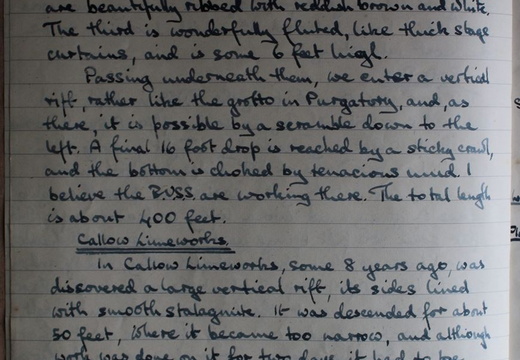 are beautifully ribbed with reddish brown and white.
The third is wonderfully fluted, like thick stage
curtains, and is some 6 feet high.
Passing underneath them, we enter a vertical
rift, rather like the grotto in Purgatory, and, as
there, it is possible by a scramble down to the
left. A final 16 foot drop is reached by a sticky crawl,
and the bottom is choked by tenacious mud. I
believe the B.U.S.S. are working there. The total length
is about 400 feet.
Callow Limeworks.
In Callow Limeworks, some 8 years ago, was
discovered a large vertical rift, its sides lined
with smooth stalagmite. It was descended for about
50 feet, where it became too narrow, and although
work was done on it for two days, it had to